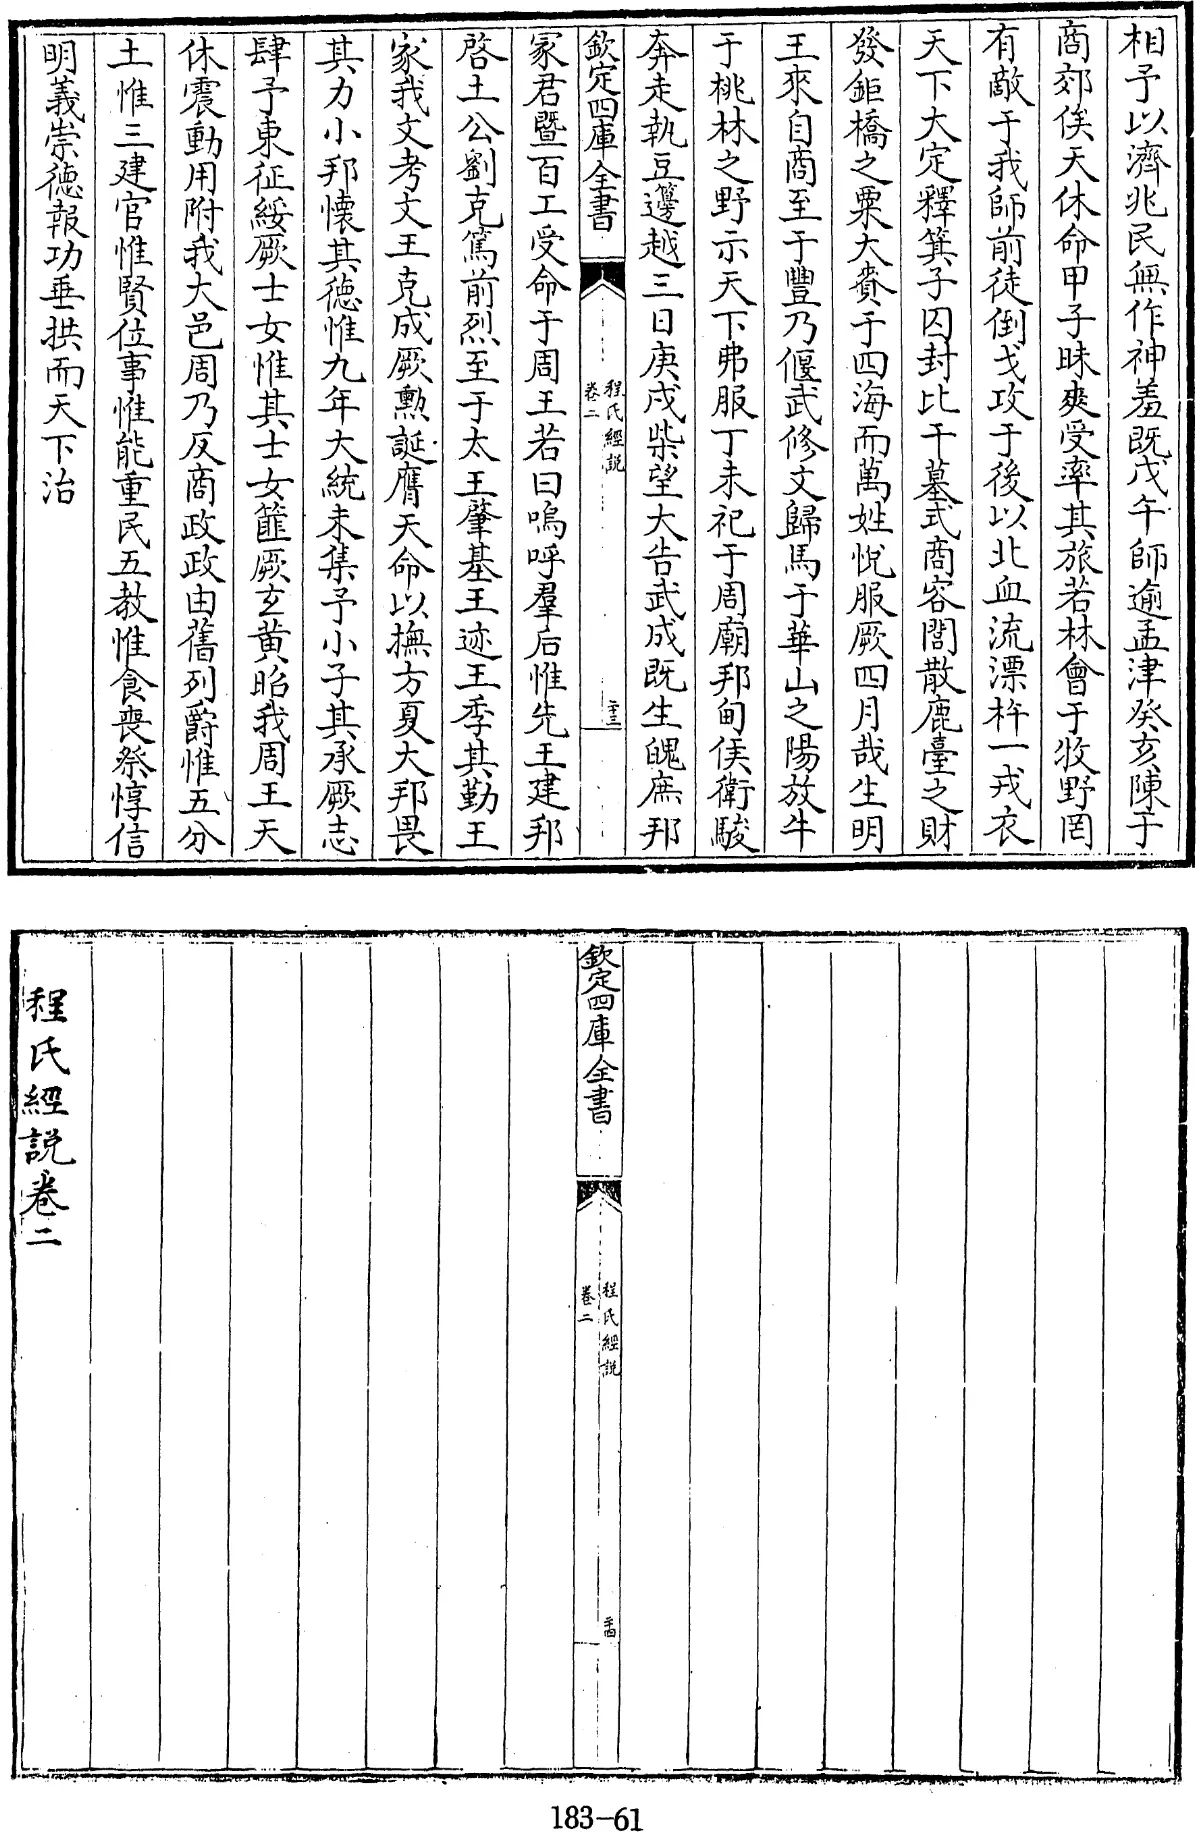 相予以濟兆民無作神羞既戊午師逾孟津癸亥陳于
商郊俟天休命甲子昧爽受率其旅若林會于牧野罔
有敵于我師前徒倒戈攻于後以北血流漂杵一戎衣
天下大定釋箕子囚封比干墓式商容閭散鹿臺之財
發鉅橋之粟大賚于四海而萬姓悅服厥四月哉生明
王來自商至于豐乃偃武修文歸馬于華山之陽放牛
于桃林之野示天下弗服丁未祀于周廟邦甸侯衛駿
奔走執豆籩越三日庚戌柴望大告武成既生魄庶邦
欽定四庫全書
程氏經說
卷二
二十三
冡君暨百工受命于周王若曰嗚呼羣后惟先王建邦
啓土公劉克篤前烈至于太王肇基王迹王季其勤王
家我文考文王克成厥勲誕膺天命以撫方夏大邦畏
其力小邦懐其徳惟九年大統未集予小子其承厥志
肆予東征綏厥士女惟其士女篚厥玄黄昭我周王天
休震動用附我大邑周乃反商政政由舊列爵惟五分
土惟三建官惟賢位事惟能重民五教惟食喪祭惇信
明義崇徳報功垂拱而天下治
欽定四庫全書
程氏經說
卷二
二十四
程氏經說卷二
183-61